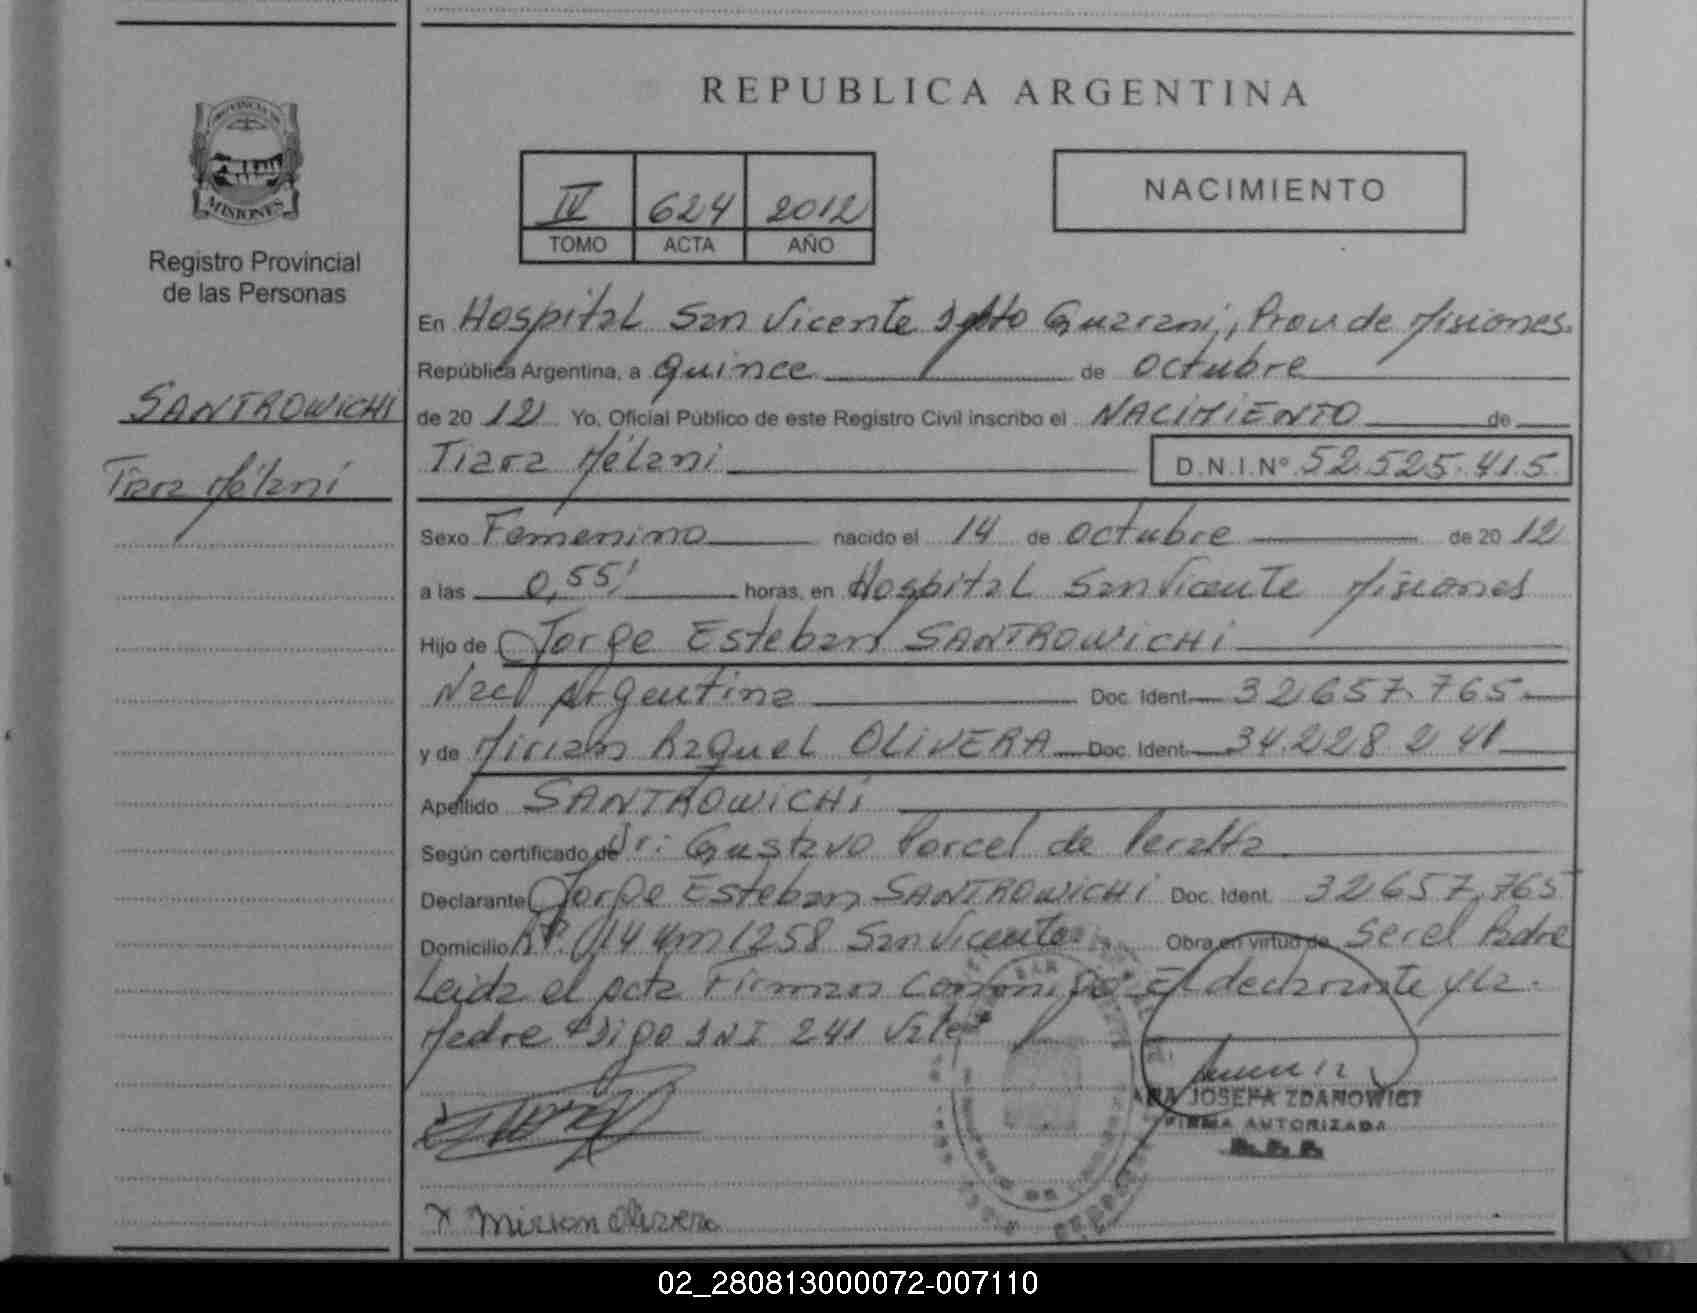 REPUBLICA ARGENTINA
PROVINCIA DE
MISIONES
Registro Provincial
de las Personas
IV 624 2012
TOMO ACTA AÑO
NACIMIENTO
En Hospital San Vicente Dpto Guarani, Prov de Misiones.
República Argentina, a quince de octubre
de 20 12 Yo, Oficial Público de este Registro Civil inscribo el NACIMIENTO de
Tiara Mélani D.N.I.Nº 52.525.415
SANTROWICHI
Tiara Mélani
Sexo Femenino nacido el 14 de octubre de 20 12
a las 0,55' horas, en Hospital San Vicente Misiones
Hijo de Jorge Esteban SANTROWICHI
Nacl Argentina Doc. Ident. 32657.765
y de Miriam Raquel OLIVERA Doc. Ident. 34.228.241
Apellido SANTROWICHI
Según certificado de Dr: Gustavo Porcel de Peralta
Declarante Jorge Esteban SANTROWICHI Doc. Ident. 32657.765
Domicilio 14 Km 1258 San Vicente Obra en virtud de Ser el Padre
Leida el acta Firman Conmigo El declarante y la
Madre Digo DNI 241 Vale
JOSEFA ZDANOWICZ
FIRMA AUTORIZADA
x Miriam Olivera
02_280813000072-007110